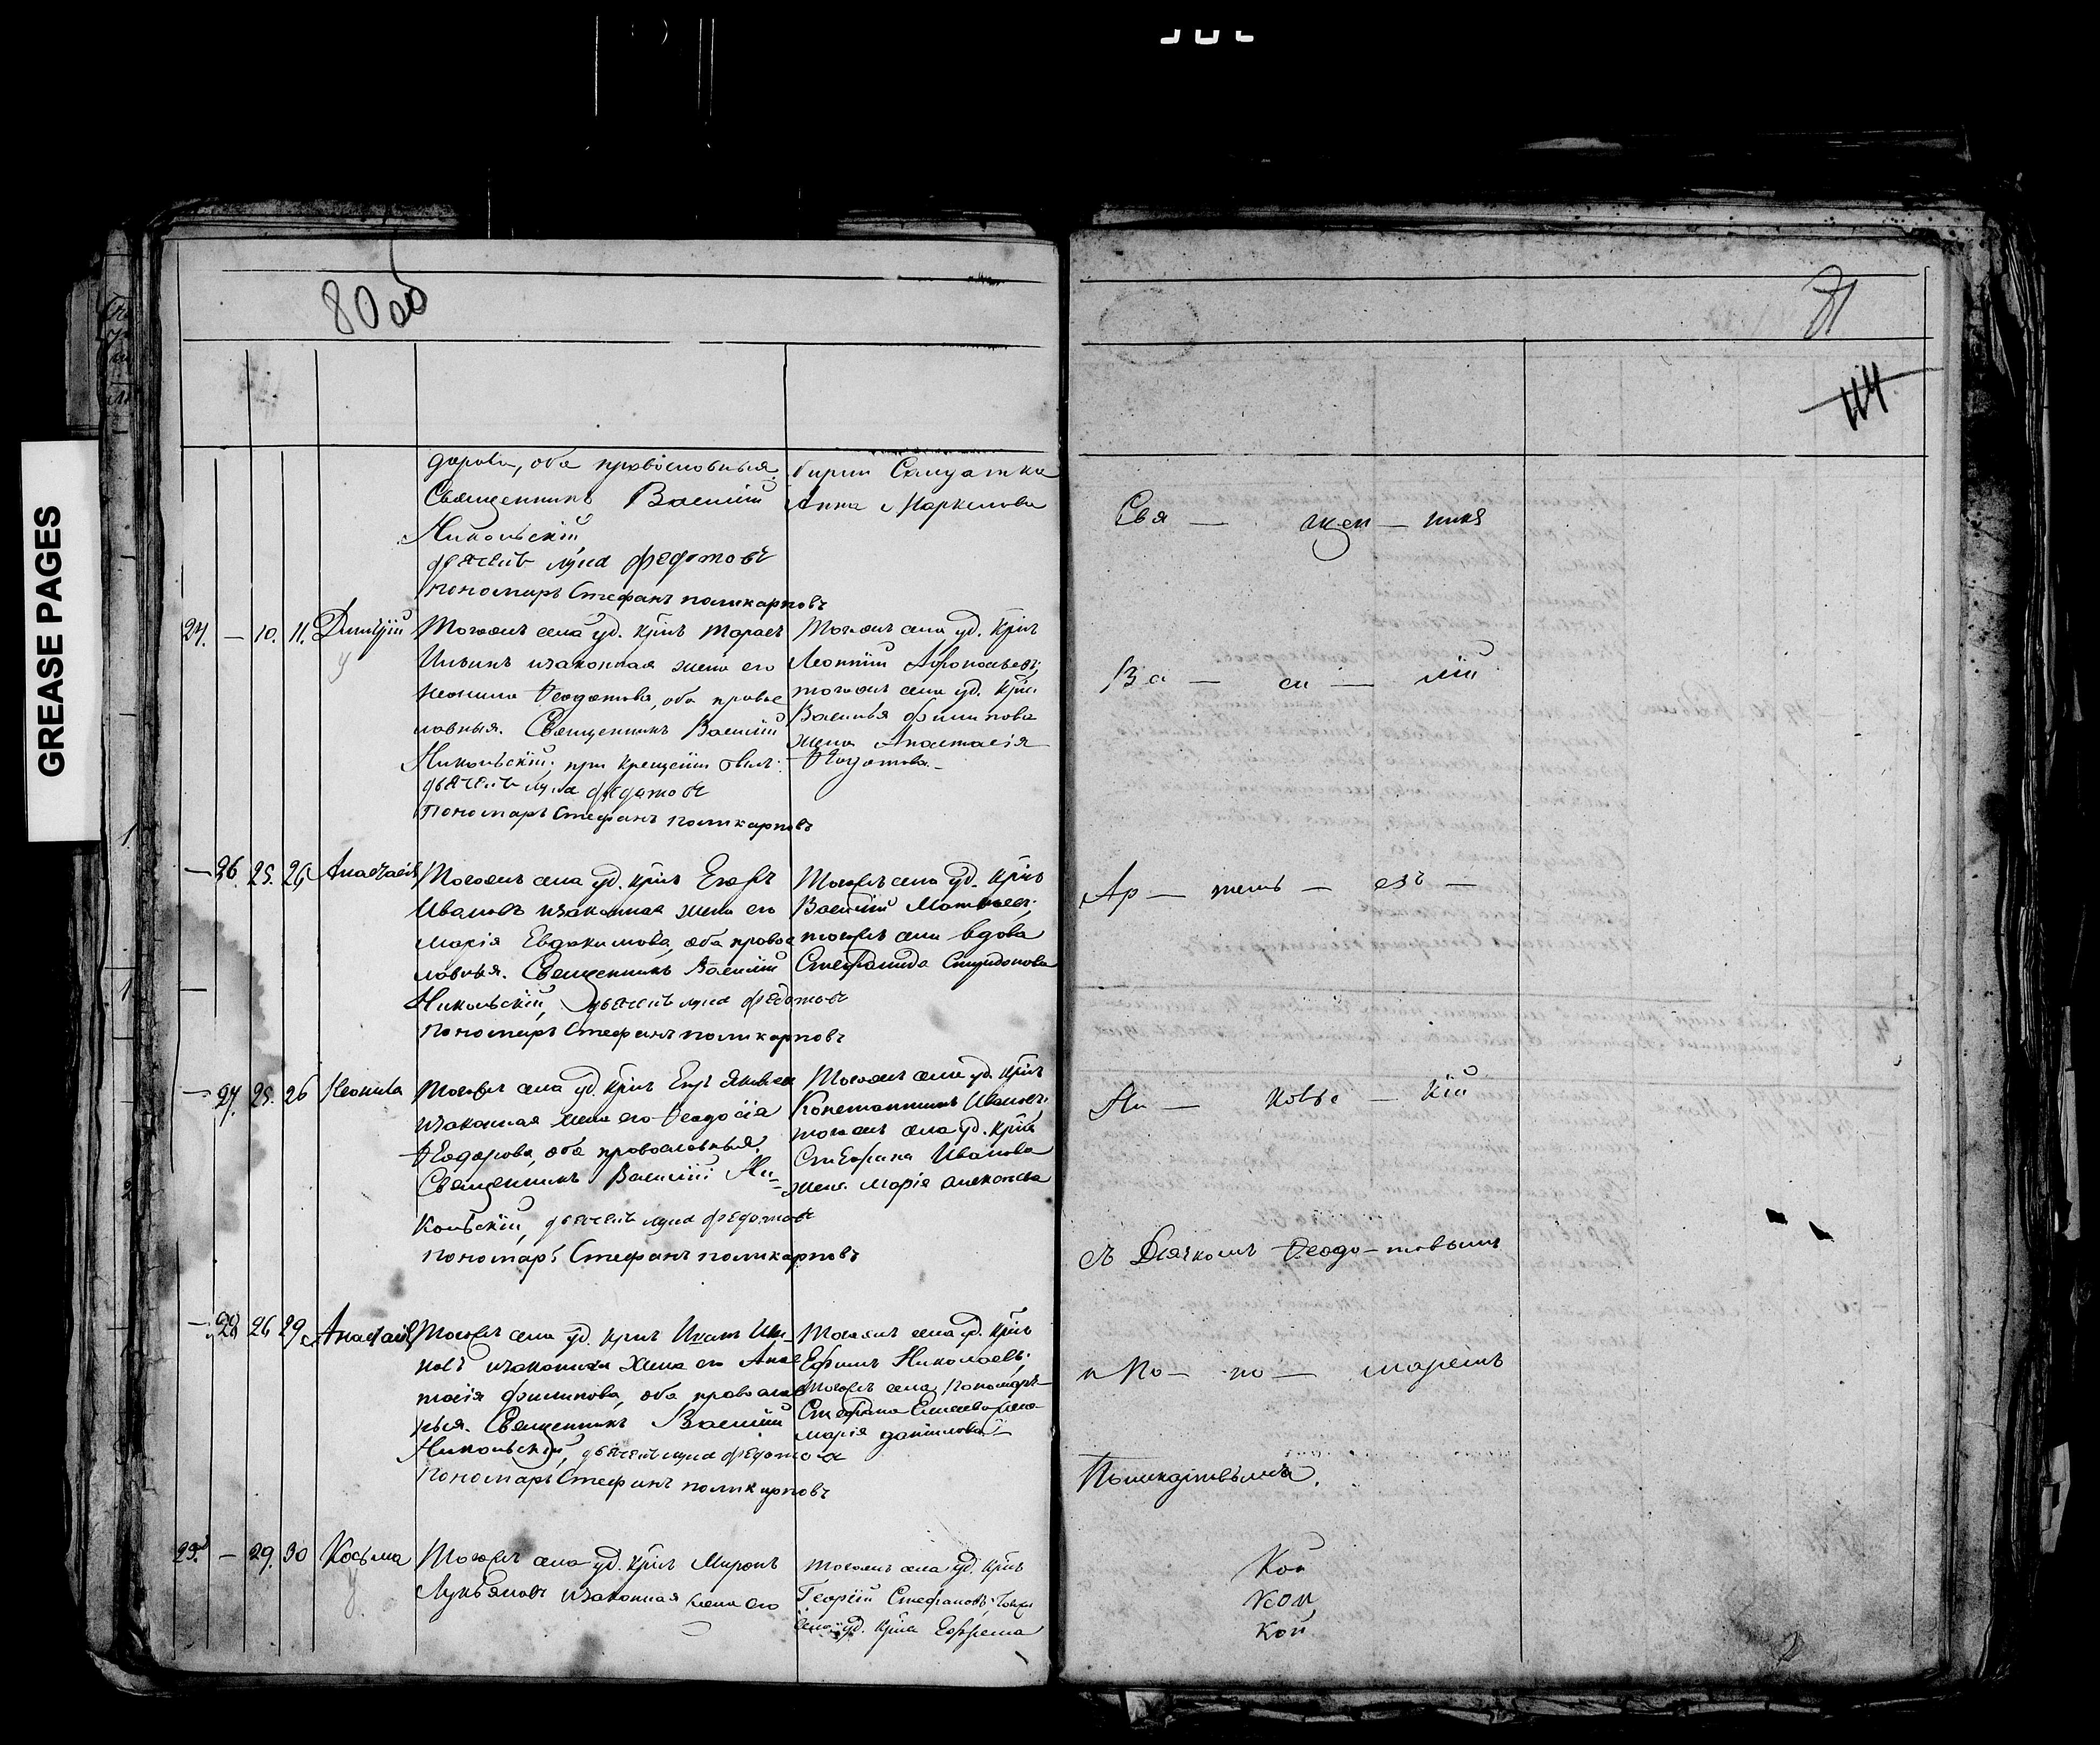 GREASE PAGES
80 об
дорова, оба православныя.
Священникъ Василій
Никольскій
дьячекъ лука федотовъ
пономарь Стефанъ поликарповъ
Анна Маркелова
24. — 10. 11. Димитрій
Тогожъ села уд. кр͠нъ Тарасъ
Ильинъ изаконная жена его
Неонила Ѳеодотова, оба правос
лавныя. Священникъ Василій
Никольскій; при крещеніи былъ:
дьячекъ лука федотовъ
Пономарь Стефанъ поликарповъ
Тогожъ села уд. кр͠нъ
Леонтій Афонасьевъ;
тогожъ села уд. кр͠на
Василья Филипова
жена Анастасія
Ѳедотова.
— 26. 25. 26. Анастасія
Тогожъ села уд. кр͠нъ Егоръ
Ивановъ изаконная жена его
Марія Евдокимова, оба правос
лавныя. Священникъ Василій
Никольскій, дьячекъ лука федотовъ
Пономарь Стефанъ поликарповъ
Тогожъ села уд. кр͠нъ
Василій Матвѣевъ;
тогожъ села вдова
Стефанида Спиридонова
— 27. 25. 26 Неонила
Тогожъ села уд. кр͠нъ Егоръ Яковлевъ
изаконная жена его Ѳеодосія
Ѳеодорова, оба православныя.
Священникъ Василій Ни-
кольскій, дьячекъ лука федотовъ
пономарь Стефанъ поликарповъ
Тогожъ села уд. кр͠нъ
Константинъ Ивановъ;
тогожъ села уд. кр͠на
Стефана Иванова
жена Марія
— 28 26 29 Анастасія
Тогожъ села уд. кр͠нъ Иванъ Ива-
новъ изаконная жена его Анас
тасія Филипова, оба православ
ныя. Священникъ Василій
Никольскій, дьячекъ лука федотовъ
Пономарь Стефанъ поликарповъ
Тогожъ села уд. кр͠нъ
Ефимъ Николаевъ;
тогожъ села Пономаря
Стефана Елисеева жена
Марія данилова
25. — 29. 30 Косьма
Тогожъ села уд. кр͠нъ Миронъ
Лукьяновъ изаконная жена его
тогожъ села уд. кр͠нъ
Георгій Стефановъ; тогожъ
села уд. кр͠на Ефрема
81
114
Свя — щен — никъ
Ва — си — лій
Ар — темь — евъ —
Ни — кольс — кій
съ Дьячкомъ Ѳеодо-товымъ
и По — но — маремъ
Поликарповымъ.
Кой
кой
кой